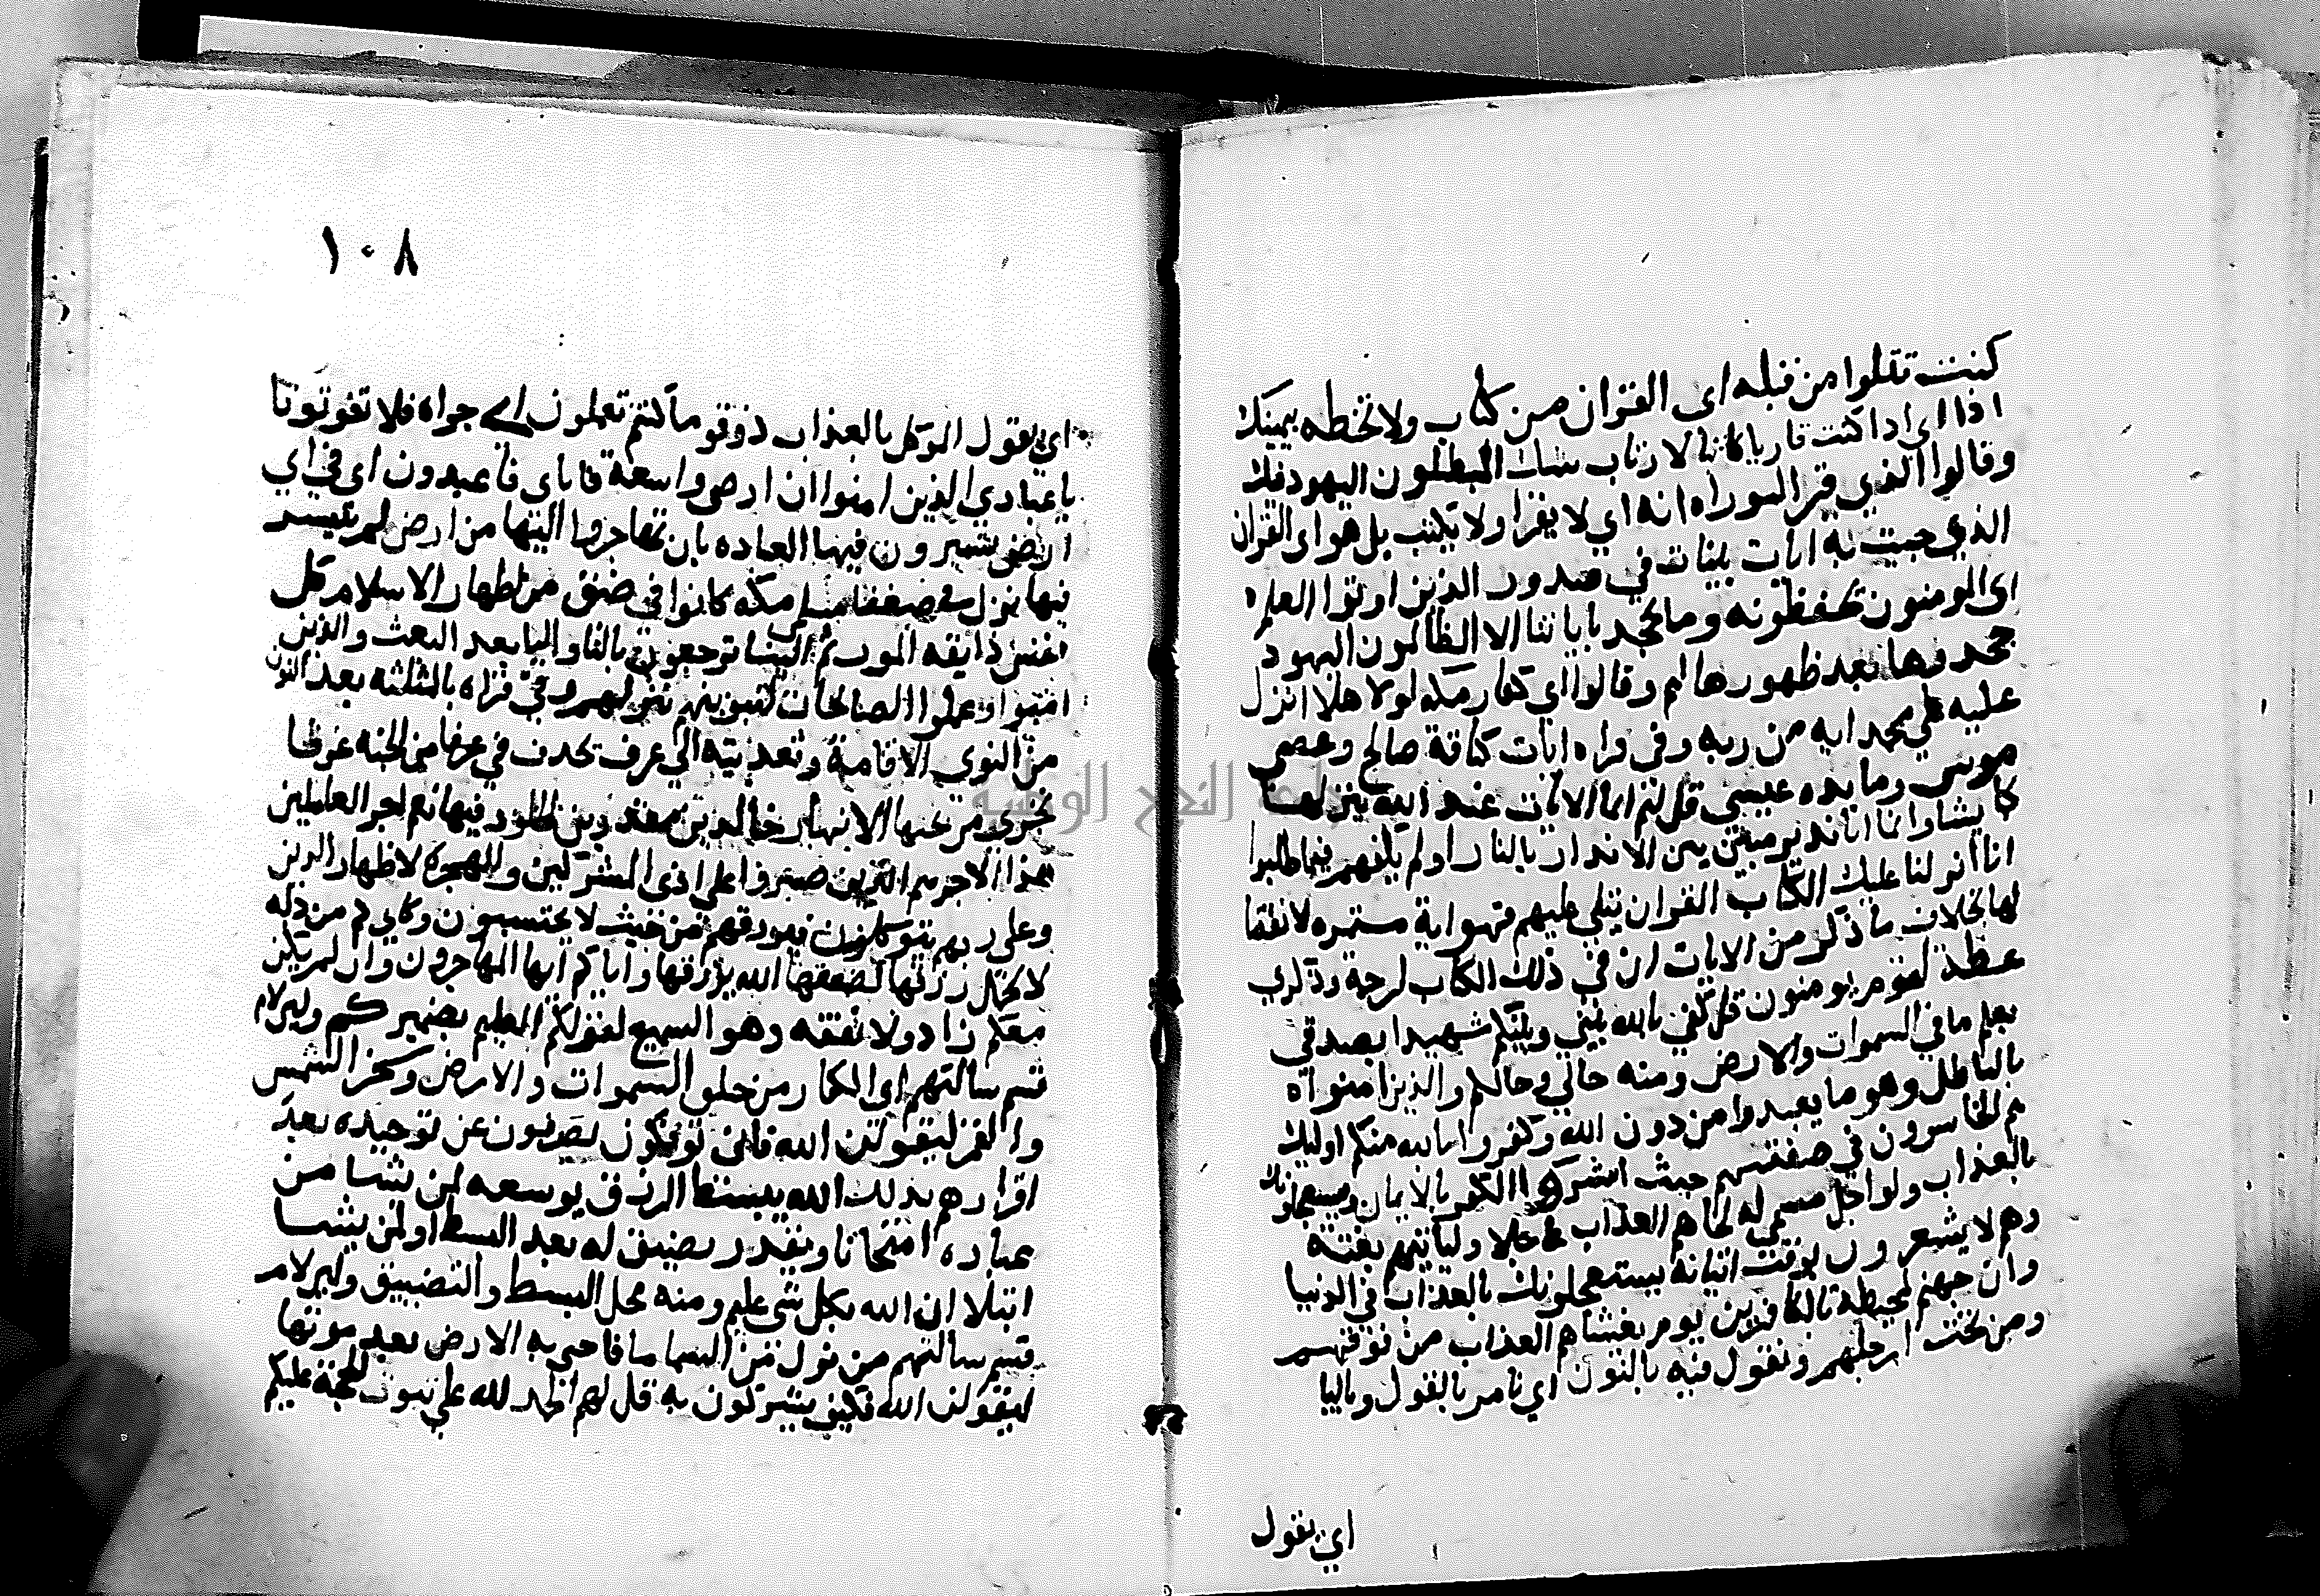 كنت تتلوا من قبله اى القران من كتاب ولا تخطه بيمينك
اذا اي اذا كنت قاريا كاتبا لارتاب شك المبطلون اليهود فيك
وقالوا الذي في التوراه انه اي لا يقرا ولا يكتب بل هو اى القران
الذي جيت به ايات بينات في صدور الذين اوتوا العلم
اى المومنون يحفظونه وما يجحد باياتنا الا الظالمون اليهود
جحدوها بعد ظهورها لهم وقالوا اى كفار مكه لولا هلا انزل
عليه على محمد ايه من ربه وفى قراه ايات كناقة صالح وعصى
موسى ومايده عيسى قل لهم انما الايات عند الله ينزلها
كما يشا وانما انا نذير مبين الانذار بالنار اولم يكفهم فيما طلبوا
انا انزلنا عليك الكتاب القران يتلى عليهم فهو اية مستمره لا انقضا
لها بخلاف ما ذكر من الايات ان في ذلك الكتاب لرحمة وذكرى
عظة لقوم يومنون قل كفى بالله بيني وبينكم شهيدا بصدقي
يعلم ما في السموات والارض ومنه حالي وحالكم والذين امنوا
بالباطل وهو ما يعبدوا من دون الله وكفروا بالله منكم اوليك
هم الخاسرون في صفقتهم حيث اشتروا الكفر بالايمان ويستعجلونك
بالعذاب ولولا اجل مسمى له لجاهم العذاب عاجلا ولياتينهم بغتة
وهم لا يشعرون بوقت اتيانه يستعجلونك بالعذاب في الدنيا
وان جهنم لمحيطة بالكافرين يوم يغشاهم العذاب من فوقهم
ومن تحت ارجلهم ونقول فيه بالنون اي نامر بالقول وباليا
اي يقول
١٠٨
اي يقول الموكل بالعذاب ذوقو ما كنتم تعملون اى جزاه فلا تفوتونا
يا عبادي الذين امنوا ان ارضى واسعة فاياي فاعبدون اى في اي
ارض تتيسرون فيها العباده بان تهاجروا اليها من ارض لم يتيسر
فيها نزل في ضعفا مسلمى مكه كانوا في ضيق من اظهار الاسلام كل
نفس ذايقه الموت ثم الينا ترجعون بالتا واليا بعد البعث والذين
امنوا وعملوا الصالحات لنبوينهم ننزلهم وفي قراه بالمثلثه بعد النون
من الثوى الاقامة وتعديته الى غرف بحذف في غرفا من الجنه غرفا
تجري من تحتها الانهار خالدين مقدرين الخلود فيها نعم اجر العاملين
هذا الاجر هم الذين صبروا على اذى المشركين والهجرة لاظهار الدين
وعلى ربهم يتوكلون فيرزقهم من حيث لا يحتسبون وكاي كم من دابه
لا تحمل رزقها لضعفها الله يرزقها واياكم ايها المهاجرون وان لم يكن
معكم زاد ولا نفقه وهو السميع لقولكم العليم بضميركم ولين لام
قسم سالتهم اى الكفار من خلق السموات والارض وسخر الشمس
والقمر ليقولن الله فانى توفكون يصرفون عن توحيده بعد
اقرارهم بذلك الله يبسط الرزق يوسعه لمن يشا من
عباده امتحانا ويقدر يضيق له بعد البسط او لمن يشا
ابتلا ان الله بكل شى عليم ومنه محل البسط والتضييق ولين لام
قسم سالتهم من نزل من السما ما فاحيى به الارض بعد موتها
ليقولن الله فكيف يشركون به قل لهم الحمد لله على ثبوت الحجة عليكم